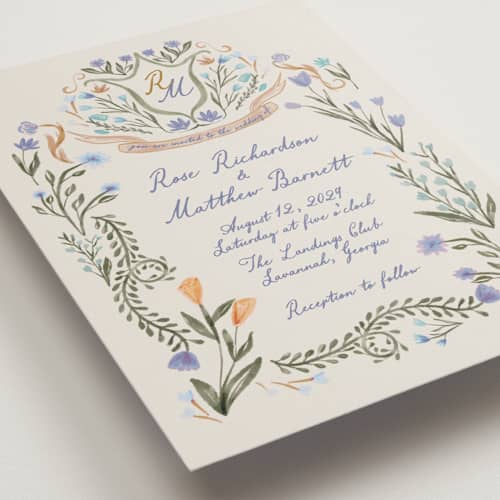 R M
you are invited to the wedding of
Rose Richardson
&
Matthew Barnett
August 12, 2029
Saturday at five o'clock
The Landings Club
Savannah, Georgia
Reception to follow